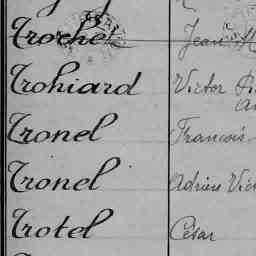 Troche Jean
Trohiard Victor
Tronel Francois
Tronel Adrien
Trotel César